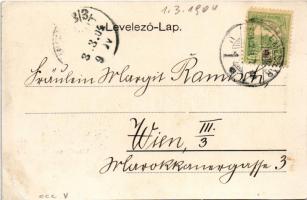 1.3.1904
Levelező-Lap.
Fräulein Margit Ramisch
Wien, III.
3
Marokkanergasse 3